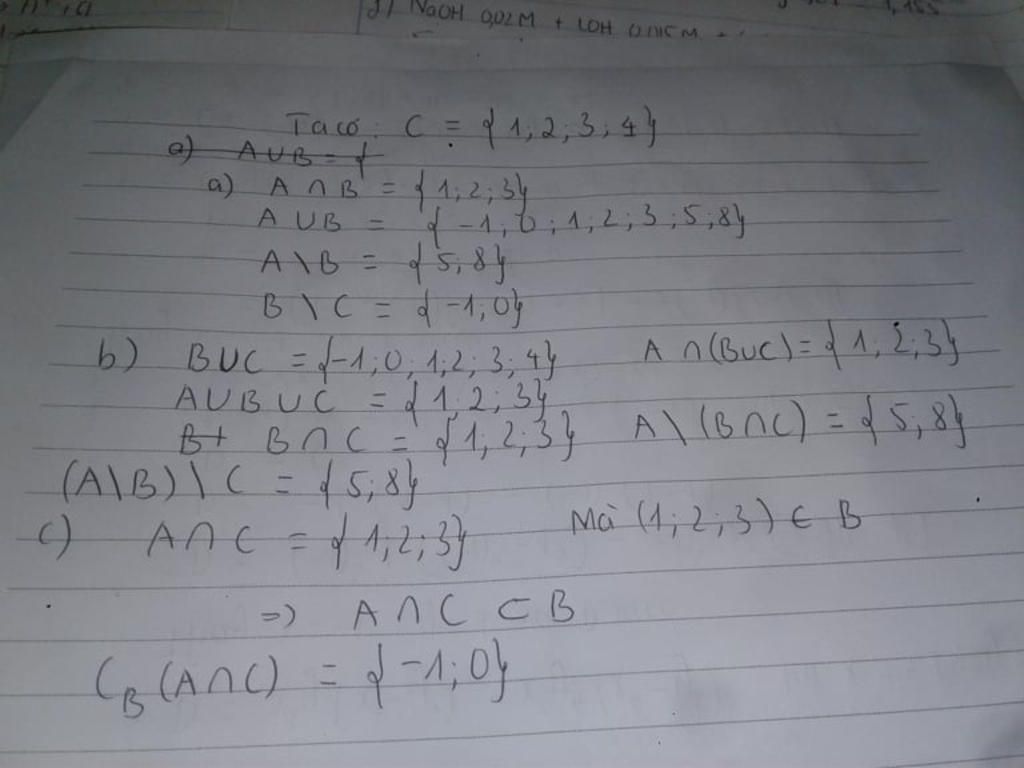 g) NaOH 0,02M +
Ta có: C = {1; 2; 3; 4}
a) A ∪ B = {
a) A ∩ B = {1; 2; 3}
A ∪ B = {-1; 0; 1; 2; 3; 5; 8}
A \ B = {5; 8}
B \ C = {-1; 0}
b) B ∪ C = {-1; 0; 1; 2; 3; 4} A ∩ (B ∪ C) = {1; 2; 3}
A ∪ B ∪ C = {1; 2; 3}
B+ B ∩ C = {1; 2; 3} A \ (B ∩ C) = {5; 8}
(A \ B) \ C = {5; 8}
c) A ∩ C = {1; 2; 3} Mà (1; 2; 3) ∈ B
=> A ∩ C ⊂ B
C_B (A ∩ C) = {-1; 0}